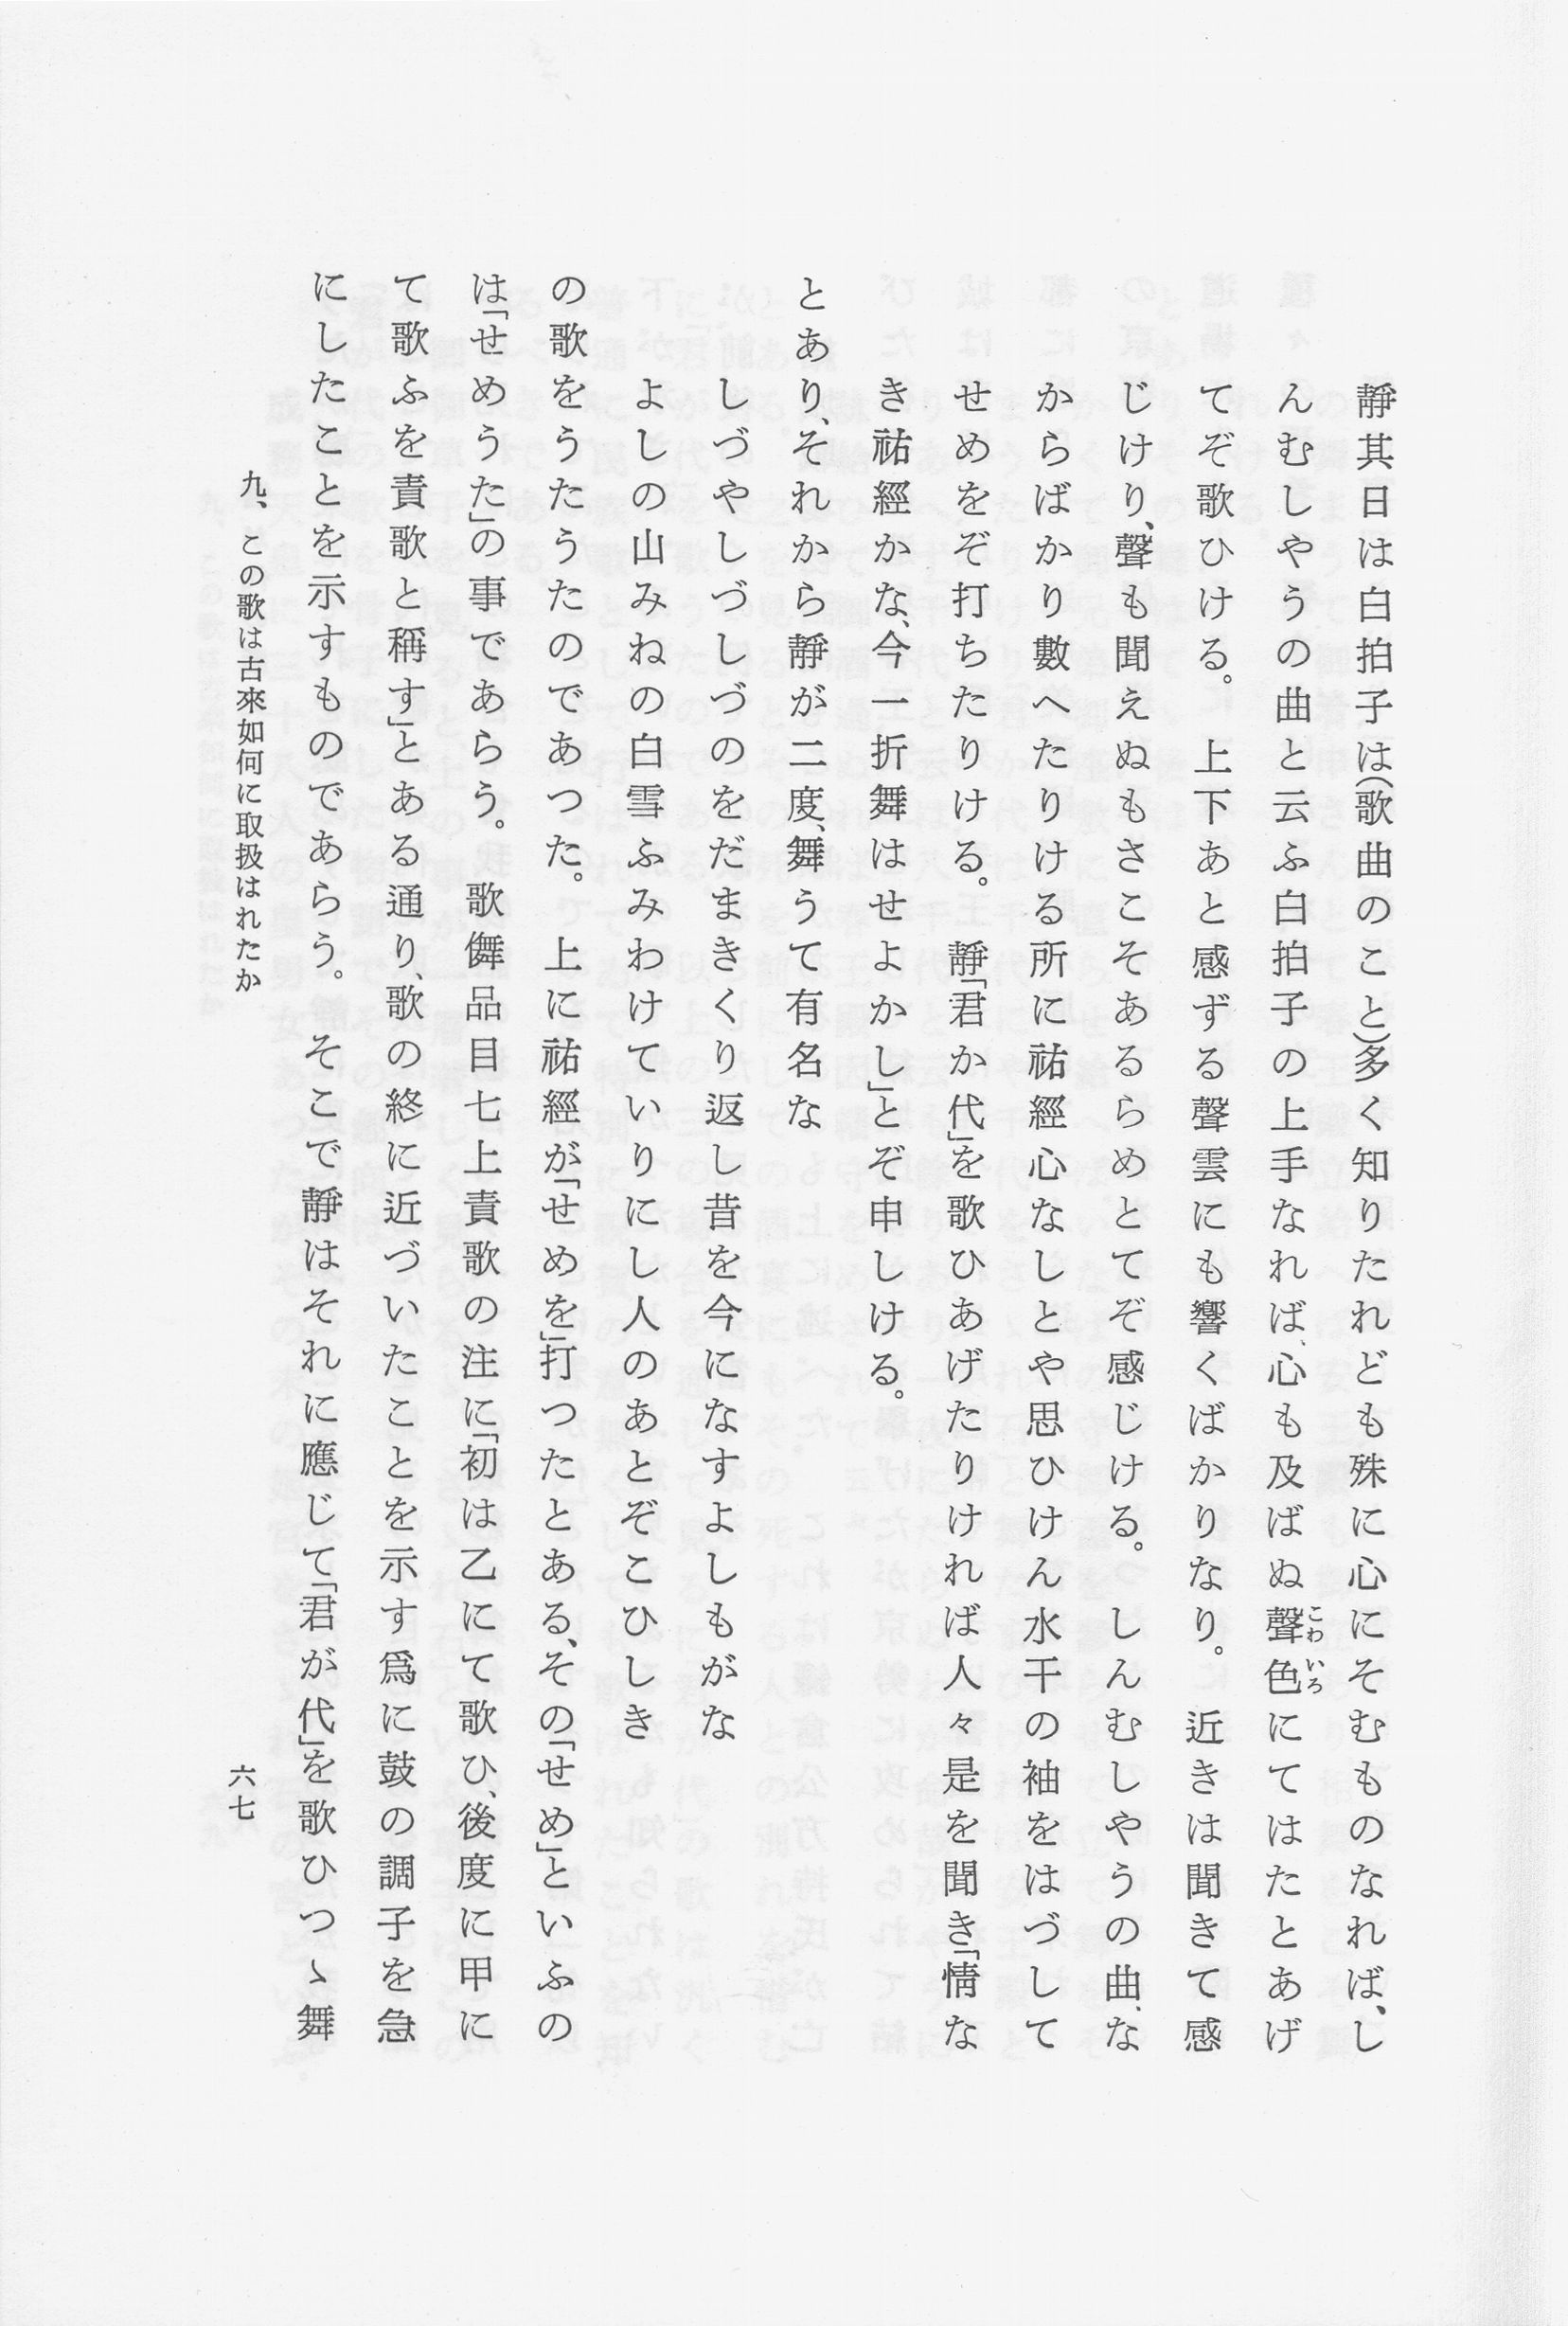 靜其日は白拍子は(歌曲のこと)多く知りたれども殊に心にそむものなれば、し
んむしやうの曲と云ふ白拍子の上手なれば、心も及ばぬ聲色にてはたとあげ
こわいろ
てぞ歌ひける。上下あと感ずる聲雲にも響くばかりなり。近きは聞きて感
じけり、聲も聞えぬもさこそあるらめとてぞ感じける。しんむしやうの曲、な
からばかり數へたりける所に祐經心なしとや思ひけん水干の袖をはづして
せめをぞ打ちたりける。靜「君か代」を歌ひあげたりければ人々是を聞き「情な
き祐經かな、今一折舞はせよかし」とぞ申しける。
とあり、それから靜が二度、舞うて有名な
しづやしづしづのをだまきくり返し昔を今になすよしもがな
よしの山みねの白雪ふみわけていりにし人のあとぞこひしき
の歌をうたうたのであつた。上に祐經が「せめを」打つたとある、その「せめ」といふの
は「せめうた」の事であらう。歌儛品目七上責歌の注に「初は乙にて歌ひ、後度に甲に
て歌ふを責歌と稱す」とある通り、歌の終に近づいたことを示す爲に鼓の調子を急
にしたことを示すものであらう。そこで靜はそれに應じて「君が代」を歌ひつゝ舞
九、この歌は古來如何に取扱はれたか
六七